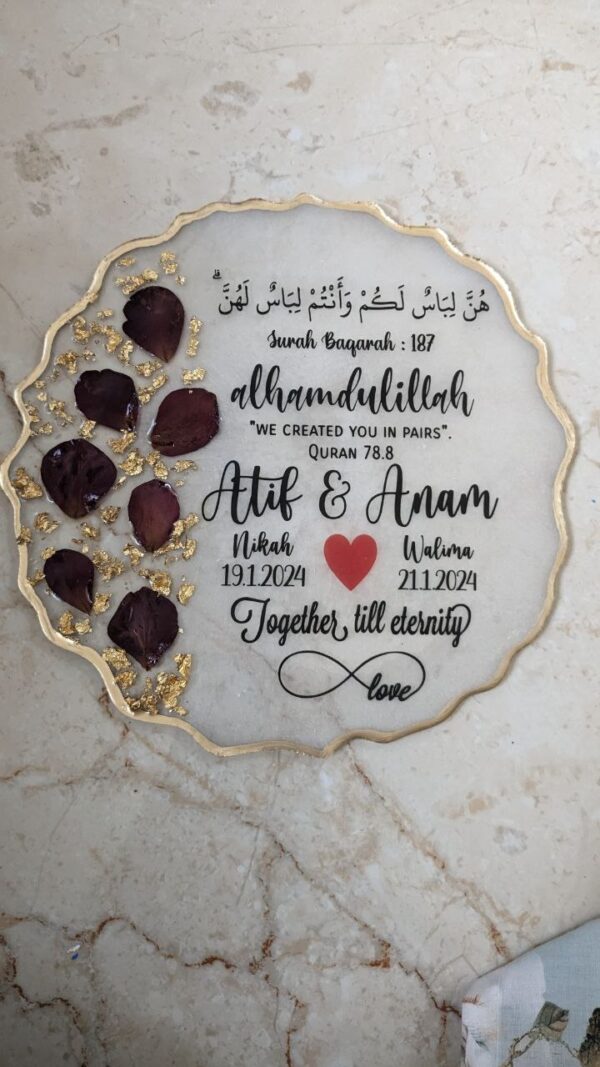 هُنَّ لِبَاسٌ لَكُمْ وَأَنْتُمْ لِبَاسٌ لَهُنَّ ۗ
Surah Baqarah : 187
alhamdulillah
"WE CREATED YOU IN PAIRS".
QURAN 78.8
Atif & Anam
Nikah Walima
19.1.2024 21.1.2024
Together, till eternity
love